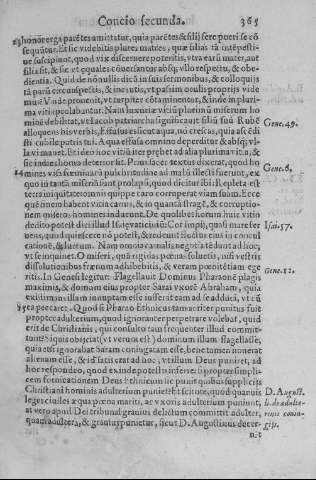 Concio secunda. 365
honor erga parētes amittatur, quia parētes & filij fere pueri se cō
sequūtur. Et sic videbitis plures matres, quæ filias tā intēpesti-
ue suscipiunt, quod vix discernere poteritis, vtra earū mater, aut
filia sit, & sic vt equales cōuersantur absq; vllo respectu, & obe-
dientia. Deinde nōnulli dicūt in suis sermonibus, & colloquijs
tā parū circunspectis, & ineptis, vt passim oculi proprijs vide
mus
ma vitia prolabantur. Nam luxuriæ vitiū plurimū miserum ho
minē debilitat, vt Iacob patriarcha significauit filiū suū Rubē
alloquens his verbis, Effusus es sicut aqua, nō crescas, quia ascēdi
sti cubile patris tui. Aqua effusa omnino deperditur & absq; vl-
la vi manet. Et ideo hoc vitiū iter præbet ad alia plurima vitia, &
sic indies homo deterior fit. Præsacer textus dixerat, quod ho
Gene. 49.
Gene. 6.
mines visu fœminarū pulchritudine ad malū illecti fuerunt, ex
quo in tantā miseriā sunt prolapsi, quod dicitur ibi: Repleta est
terra iniquitate: omnis quippe caro corruperat viam suam. Ecce
quē finem habent vitia carnis, & in quantā stragē, & corruptio-
nem miseros homines inducunt. De quolibet horum huic vitio
dedito potest dici illud Isai. vaticiniū: Cor impij, quasi mare fer
Isai. 57.
uens, quod quiescere nō potest, & redundāt fluctus eius in concul
cationē, & lutum. Nam omnia carnalis negotia tēdunt ad hoc,
vt se inquinet. O miseri, quā rigidas pœnas soluetis, nisi vestris
dissolutionibus frænum adhibebitis, & veram pœnitētiam ege
ritis. In Genesi legitur: Flagellauit Dominus Pharaonē plagis
Gene. 12.
maximis, & domum eius propter Sarai vxorē Abraham, quia
existimans illam innuptam esse iusserit eam ad se adduci, vt cū
ea peccaret. Quod si Pharao Ethnicus tam acriter punitus fuit
propter adulterium, quod ignoranter perpetrare volebat, quid
erit de Christianis, qui consulto tam frequenter illud commit-
tunt?
quia etsi ignorabat Saram coniugatam esse, bene tamen norerat
alienam esse, & id satis erat ad hoc, vt illum Deus puniret, ad
hoc respondeo, quod ex inde potestis inferre: si propter simpli-
cem fornicationem Deus Ethnicum sic puniit quibus supplicijs
Christiani homines adulterium punient? Et scitote, quod quamuis
leges ciuiles æqua pœna mariti, ac vxoris adulterium puniunt,
at vero apud Dei tribunal grauius delictum committit adulter,
quam adultera, & grauius punietur, sicut D. Augustinus decer-
D. August.
li. de adulte-
rinis coniu-
gijs.
n.t